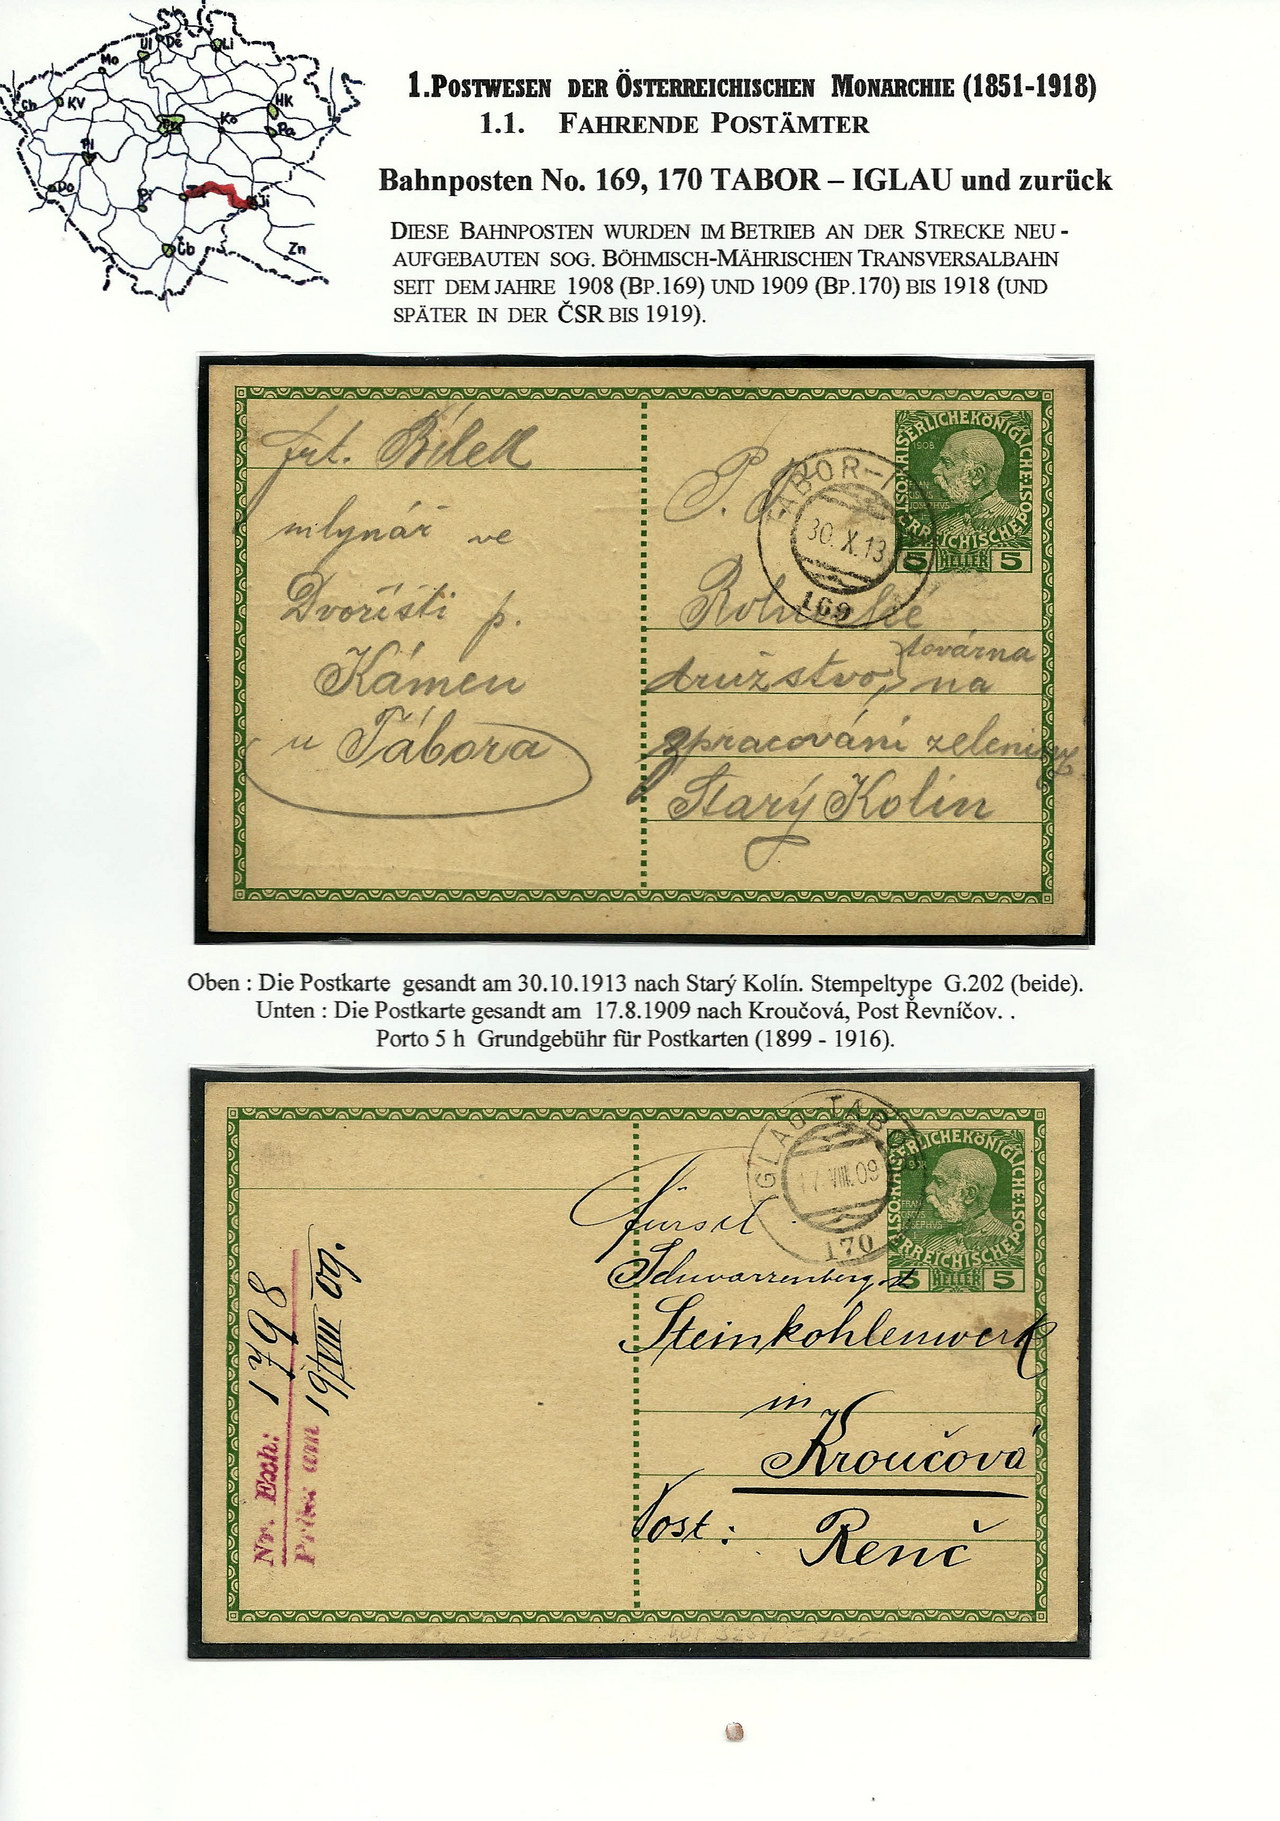 Ul
Dě
Li
Mo
Ch
KV
HK
Pr
Ko
Pa
Pl
Do
Pi
Ji
Čb
Zn
1.Postwesen der Österreichischen Monarchie (1851-1918)
1.1. Fahrende Postämter
Bahnposten No. 169, 170 TABOR – IGLAU und zurück
Diese Bahnposten wurden im Betrieb an der Strecke neu-
aufgebauten sog. Böhmisch-Mährischen Transversalbahn
seit dem Jahre 1908 (Bp.169) und 1909 (Bp.170) bis 1918 (und
später in der ČSR bis 1919).
Frt. Bílek
mlynář ve
Dvořišti p.
Kámen
u Tábora
P. T.
družstvo, továrna na
zpracování zeleniny
Starý Kolín
TABOR-I
30.X.13
169
KAISERLICHEKÖNIGLICHE ÖSTERREICHISCHE POST
1908
5 HELLER 5
Oben : Die Postkarte gesandt am 30.10.1913 nach Starý Kolín. Stempeltype G.202 (beide).
Unten : Die Postkarte gesandt am 17.8.1909 nach Kroučová, Post Řevníčov. .
Porto 5 h Grundgebühr für Postkarten (1899 - 1916).
IGLAU-TABOR
17.VIII.09
170
KAISERLICHEKÖNIGLICHE ÖSTERREICHISCHE POST
5 HELLER 5
Fürstl.
Schwarzenberg'
Steinkohlenwerk
in
Kroučová
Post: Renč
Nr. Exh:
Präs am 19/VIII 09.